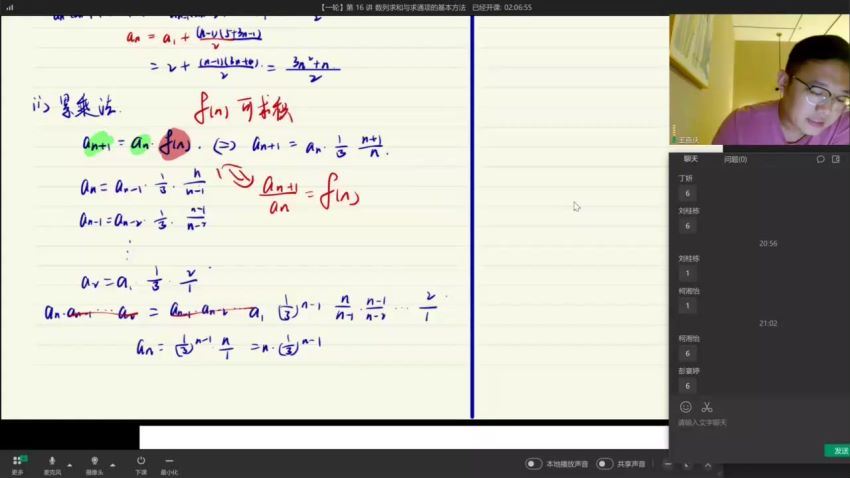 【一轮】第 16 讲 数列求和与求通项的基本方法 已经开课: 02:06:55
aₙ = a₁ + (n-1)(5+3n-1)/2
= 2 + (n-1)(3n+4)/2 = (3n²+n)/2
(ii) 累乘法. f(n) 可求积
aₙ₊₁ = aₙ · f(n). (=) aₙ₊₁ = aₙ · 1/3 · (n+1)/n.
aₙ = aₙ₋₁ · 1/3 · n/(n-1)
aₙ₊₁/aₙ = f(n)
aₙ₋₁ = aₙ₋₂ · 1/3 · (n-1)/(n-2)
⋮
a₂ = a₁ · 1/3 · 2/1
aₙ·aₙ₋₁ ⋯ a₂ = aₙ₋₁·aₙ₋₂ ⋯ a₁ (1/3)ⁿ⁻¹ n/(n-1) · (n-1)/(n-2) ⋯ 2/1
aₙ = (1/3)ⁿ⁻¹ · n/1 = n·(1/3)ⁿ⁻¹
聊天 问题(0)
丁妍
6
刘桂栋
6
20:56
刘桂栋
1
柯湘怡
1
21:02
柯湘怡
6
彭宴婷
6
请输入文字聊天
发送
更多 麦克风 摄像头 下课 最小化 本地播放声音 共享声音